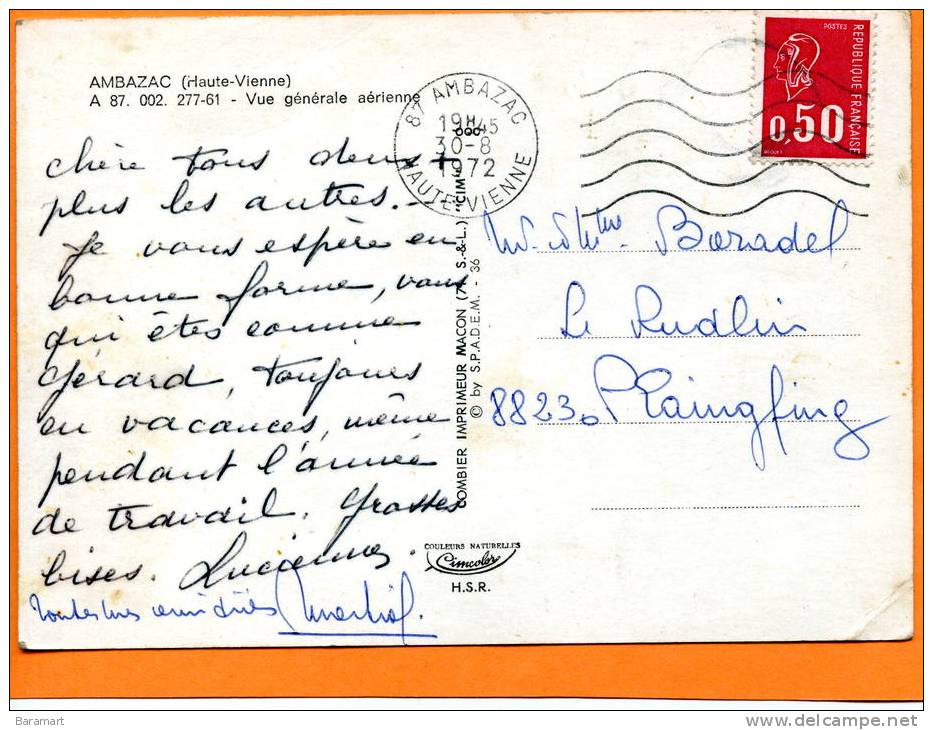 AMBAZAC (Haute-Vienne)
A 87. 002. 277-61 - Vue générale aérienne
chère tous deux +
plus les autres. -
Je vous espère en
bonne forme, vous
qui êtes comme
Gérard, toujours
en vacances, même
pendant l'année
de travail. Grosses
bises. Lucienne.
Toutes mes amitiés Martial.
87 AMBAZAC
19H45
30-8
1972
HAUTE-VIENNE
COMBIER IMPRIMEUR MACON (71 S.-&-L.) "CIM"
© by S.P.A.D.E.M. - 36
COULEURS NATURELLES
Cimcolor
H.S.R.
POSTES
REPUBLIQUE FRANÇAISE
0,50
Mr. & Mme. Boradel
Le Rudlin
88230 Plaingfing
Baramart
delcampe.net